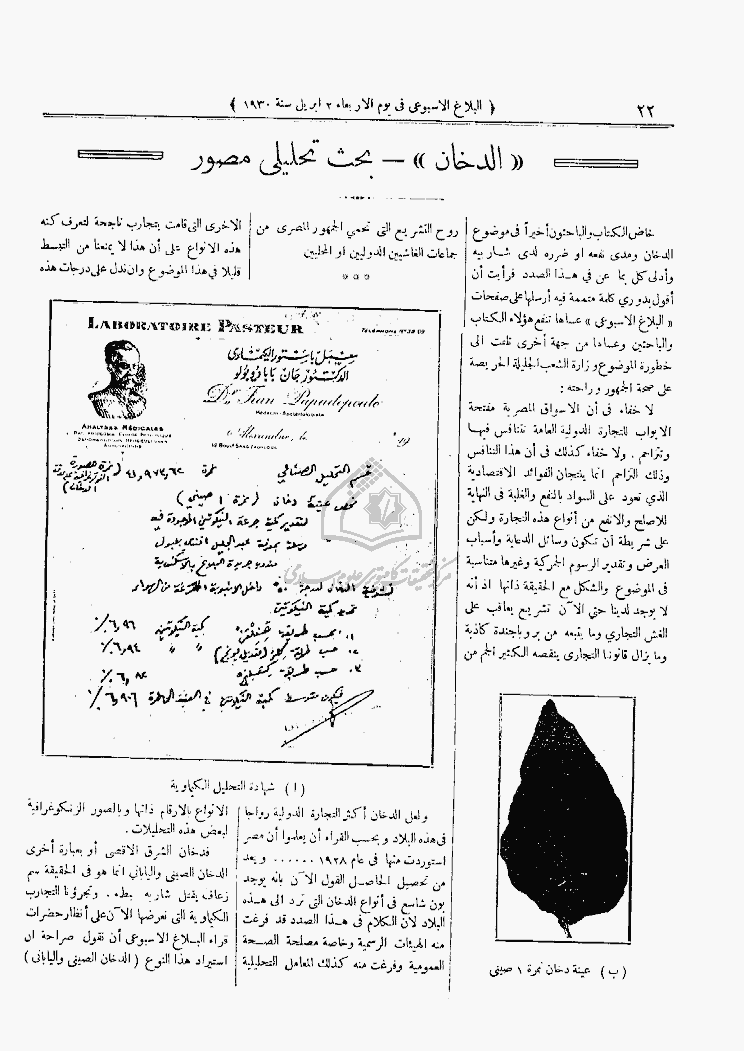 ٢٢
﴿ البلاغ الاسبوعى فى يوم الاربعاء ٢ ابريل سنة ١٩٣٠ ﴾
« الدخان » – بحث تحليلى مصور
خاض الكتاب والباحثون أخيراً فى موضوع
الدخان ومدى نفعه او ضرره لدى شاربيه
وأدلى كل بما عن فى هذا الصدد فرأيت أن
أقول بدوري كلمة متممة فيه أرسلها على صفحات
« البلاغ الاسبوعى » عساها تنفع هؤلاء الكتاب
والباحثين وعساها من جهة أخرى تلفت الى
خطورة الموضوع وزارة الشعب الجليلة الحريصة
على صحة الجمهور وراحته :
لا خفاء فى أن الاسواق المصرية مفتحة
الابواب للتجارة الدولية العامة تتنافس فيها
وتتزاحم . ولا خفاء كذلك فى أن هذا التنافس
وذلك التزاحم انما ينتجان الفوائد الاقتصادية
الذي تعود على السواد بالنفع والغلبة فى النهاية
للاصلح والانفع من أنواع هذه التجارة ولكن
على شريطة أن تكون وسائل الدعاية وأسباب
العرض وتقدير الرسوم الجمركية وغيرها متناسبة
فى الموضوع والشكل مع الحقيقة ذاتها اذ أنه
لا يوجد لدينا حتي الآن تشريع يعاقب على
الغش التجاري وما يتبعه من بروباجندة كاذبة
وما يزال قانونا التجارى ينقصه الكثير الجم من
(ب) عينة دخان نمرة ١ صينى
روح التشريع التى تحمي الجمهور المصرى من
جماعات الغاشيين الدوليين او المحليين
* * *
LABORATOIRE PASTEUR
TÉLÉPHONE N° 38 09
معمل باستور الكيماوى
الدكتور جان بابادوبولو
Dr Jean Papadopoulo
ANALYSES MÉDICALES
Alexandrie, le 19
قسم التحليل الصناعي
فحص عينة دخان (نمرة ١ صيني)
لتقدير كمية النيكوتين الموجودة فيه
كمية النيكوتين ٦,٩٦٪
٦,٩٤٪
٦,٨٢٪
متوسط كمية النيكوتين فى العينة الحاضرة ٦,٩٠٦٪
(ا) شهادة التحليل الكيماوية
ولعل الدخان أكثر التجارة الدولية رواجا
فى هذه البلاد وبحسب القراء أن يعلموا أن مصر
استوردت منها فى عام ١٩٢٨ ...... ويعد
من تحصيل الحاصل القول الآن بأنه يوجد
بون شاسع فى أنواع الدخان التى ترد الى هذه
البلاد لأن الكلام فى هذا الصدد قد فرغت
منه الهيئات الرسمية وخاصة مصلحة الصحة
العمومية وفرغت منه كذلك المعامل التحليلية
الاخرى التى قامت بتجارب ناجحة لتعرف كنه
هذه الانواع على أن هذا لا يمنعنا من التبسط
قليلا في هذا الموضوع وان ندل على درجات هذه
الانواع بالارقام ذاتها وبالصور الزنكوغرافية
لبعض هذه التحليلات .
فدخان الشرق الاقصى أو بعبارة أخرى
الدخان الصينى والياباني انما هو فى الحقيقة سم
زعاف يقتل شاربه ببطء . وتجرؤنا التجارب
الكيماوية التى نعرضها الآن على أنظار حضرات
قراء البلاغ الاسبوعى أن نقول صراحة ان
استيراد هذا النوع ( الدخان الصيني والياباني )